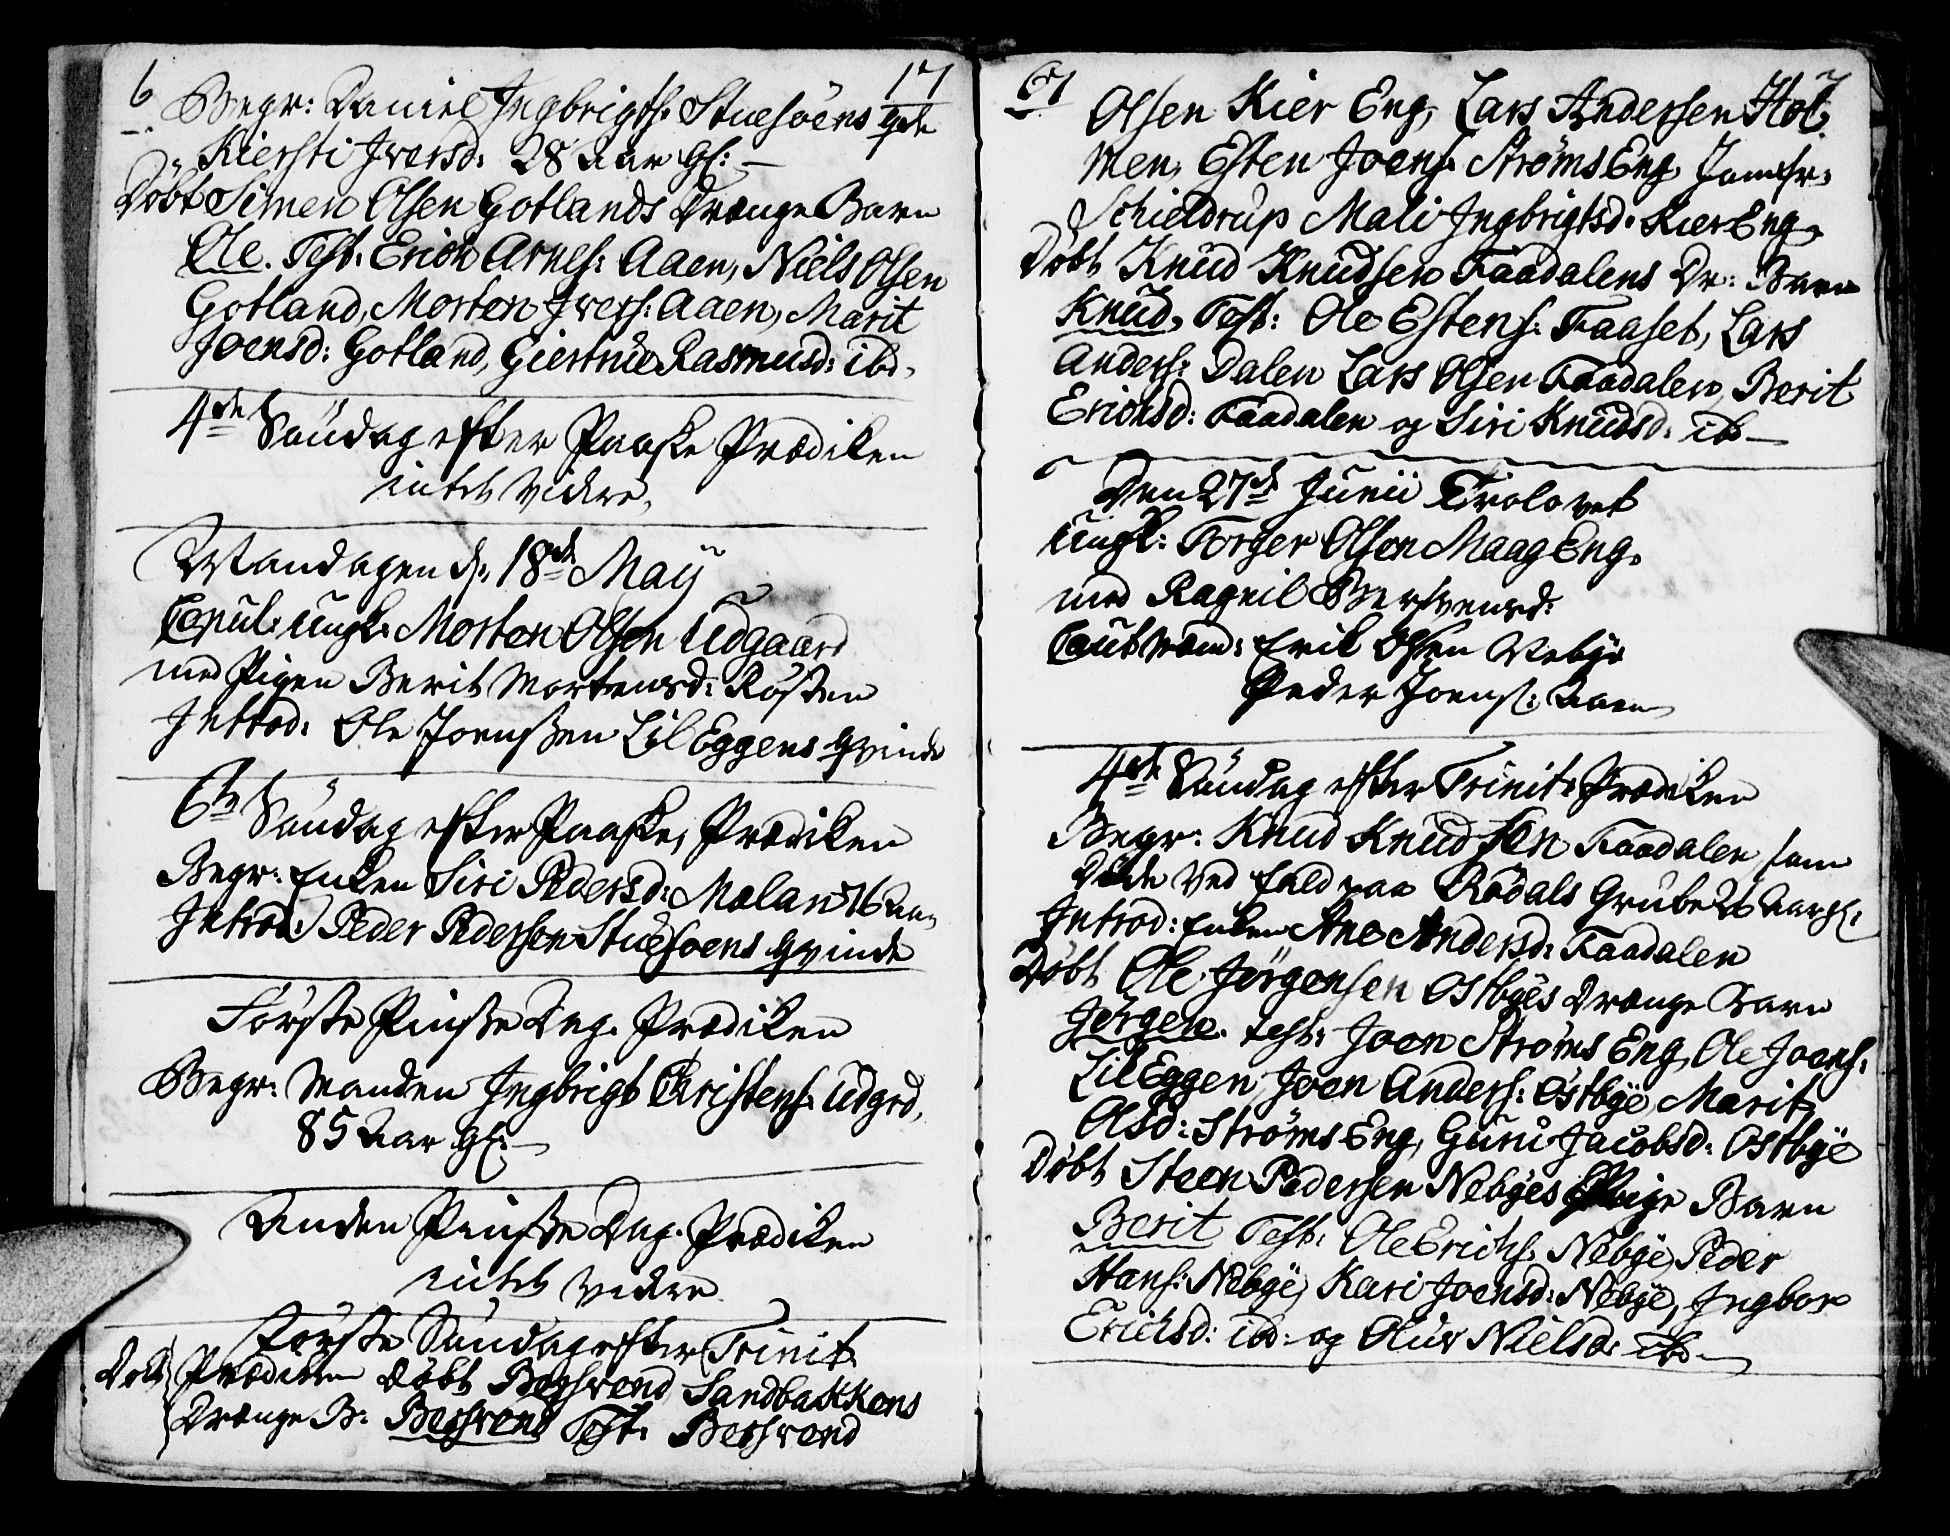 6 17
Begr: Daniel Ingbrigts: Stuesöens qvde
Kiersti Iversd: 28 Aar gl: —
Döbt Simen Olsen Gotlands Drænge Barn
Ole. Test. Erich Arnes: Aaen, Niels Olsen
Gotland, Morten Ivers: Aaen, Marit
Joensd: Gotland, Giertrue Rasmusd: ibd.
4de Söndag efter Paaske Prædiken
intet videre.
Mandagen d. 18de Maij
Copul: ungk. Morten Olsen Udgaard
med Pigen Berit Mortensd: Rösten
Introd: Ole Joenssen Lil Eggens Qvinde
6te Söndag efter Paaske, Prædiken
Begr: Enken Siri Pedersd: Molan 76 Aar
Introd: Peder Pedersen Stuesoens Qvinde
Förske Pinsse Dag. Prædiken
Begr: Manden Ingbrigt Christens: Udgrd,
85 Aar gl: —
Anden Pinsse Dag. Prædiken
intet videre
Förste Söndag efter Trinit
Prædiken Döbt Berswend Sandbakkens
Drænge B: Berswend Test: Berswend
67 7
Olsen Kier Eng, Lars Andersen Hol-
men, Esten Joens: Ströms Eng, Jomfr:
Schieldrup Mali Ingbrigtsd: Kier Eng,
Döbt Knud Knudsen Faadalens Dr: Barn
Knud, Test: Ole Estens: Faaset, Lars
Anders: Dalen Lars Olsen Faadalen, Berit
Erichsd: Faadalen og Siri Knudsd: ib —
Den 27de Junii Trolovet
ungk: Torger Olsen Maag Eng.
med Ragnil Berswensd:
Cautnom: Erik Olsen Nebye
Peder Joens: Aaen
4de Söndag efter Trinit: Prædiken
Begr: Knud Knudsen Faadalen som
döde ved fald paa Rödals Grube 26 Aar gl:
Introd: Enken Ane Andersd: Faadalen
Döbt Ole Jörgensen Ostbyes Drænge Barn
Jörgen. test: Joen Ströms Eng, Ole Joens:
Lil Eggen Joen Anders: Ostbye, Marit
Olsd: Ströms Eng, Guru Jacobsd: Ostbye
Döbt Steen Pedersen Nebyes Pige Barn
Berit Test: Ole Erichs: Nebye, Peder
Hans: Nebye, Kari Joensd: Nebye, Ingbor
Erichsd: ibd: og Oluv Nielsd: ibd —